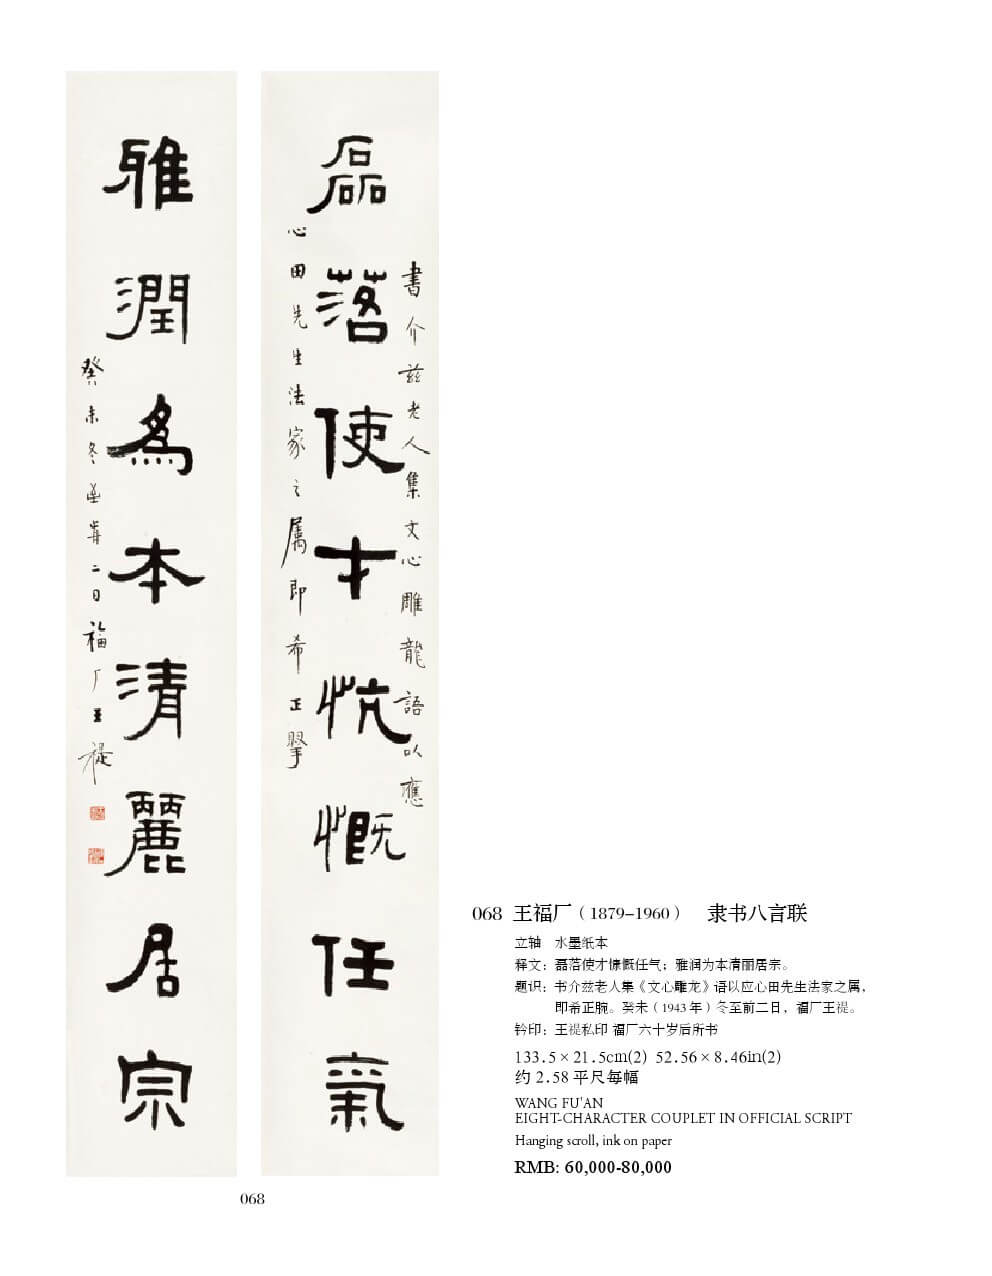 書介兹老人集文心雕龍語以應
磊落使才忼慨任氣
心田先生法家之属即希正掔
雅潤為本清麗居宗
癸未冬至歬二日福厂王禔
068
068 王福厂（1879-1960） 隶书八言联
立轴 水墨纸本
释文：磊落使才慷慨任气；雅润为本清丽居宗。
题识：书介兹老人集《文心雕龙》语以应心田先生法家之属，
即希正腕。癸未（1943 年）冬至前二日，福厂王禔。
钤印：王禔私印 福厂六十岁后所书
133.5×21.5cm(2) 52.56×8.46in(2)
约 2.58 平尺每幅
WANG FU'AN
EIGHT-CHARACTER COUPLET IN OFFICIAL SCRIPT
Hanging scroll, ink on paper
RMB: 60,000-80,000